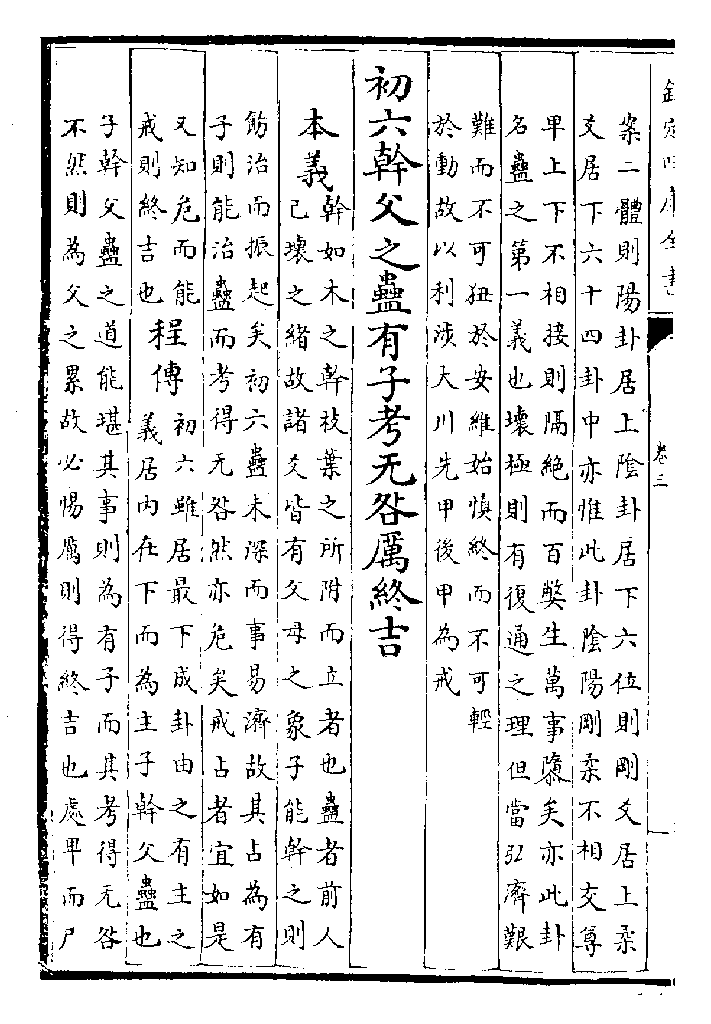 欽定四庫全書
卷三
案二體則陽卦居上陰卦居下六位則剛爻居上柔
爻居下六十四卦中亦惟此卦陰陽剛柔不相交尊
卑上下不相接則隔絶而百弊生萬事隳矣亦此卦
名蠱之第一義也壞極則有復通之理但當弘濟艱
難而不可狃於安維始慎終而不可輕
於動故以利涉大川先甲後甲為戒
初六幹父之蠱有子考无咎厲終吉
本義幹如木之幹枝葉之所附而立者也蠱者前人
已壞之緒故諸爻皆有父母之象子能幹之則
飭治而振起矣初六蠱未深而事易濟故其占為有
子則能治蠱而考得无咎然亦危矣戒占者宜如是
又知危而能
戒則終吉也
程傳初六雖居最下成卦由之有主之
義居内在下而為主子幹父蠱也
子幹父蠱之道能堪其事則為有子而其考得无咎
不然則為父之累故必惕厲則得終吉也處卑而尸